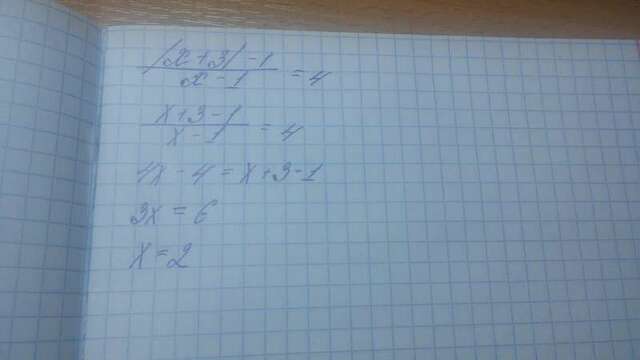 |x+3|-1 / x-1 = 4
x+3-1 / x-1 = 4
4x-4=x+3-1
3x=6
x=2